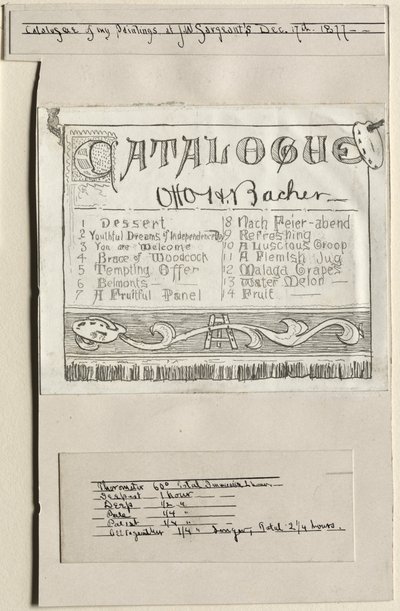 Catalogue of my Paintings at J.W. Sargeant's Dec. 17th. 1877 - -
CATALOGUE
Otto H. Bacher
1 Dessert
2 Youthful Dreams of Independence Day
3 You are Welcome
4 Brace of Woodcock
5 Tempting Offer
6 Belmonts
7 A Fruitful Panel
8 Nach Feier-abend
9 Refreshing
10 A Luscious Groop
11 A Flemish Jug
12 Malaga Grapes
13 Water Melon
14 Fruit
60° Total Immersion
Deepest 1 hour
Deep 1/2 "
Pale 1/4 "
Palest 1/4 "
All together 1/4 " longer, Total 2 1/4 hours.